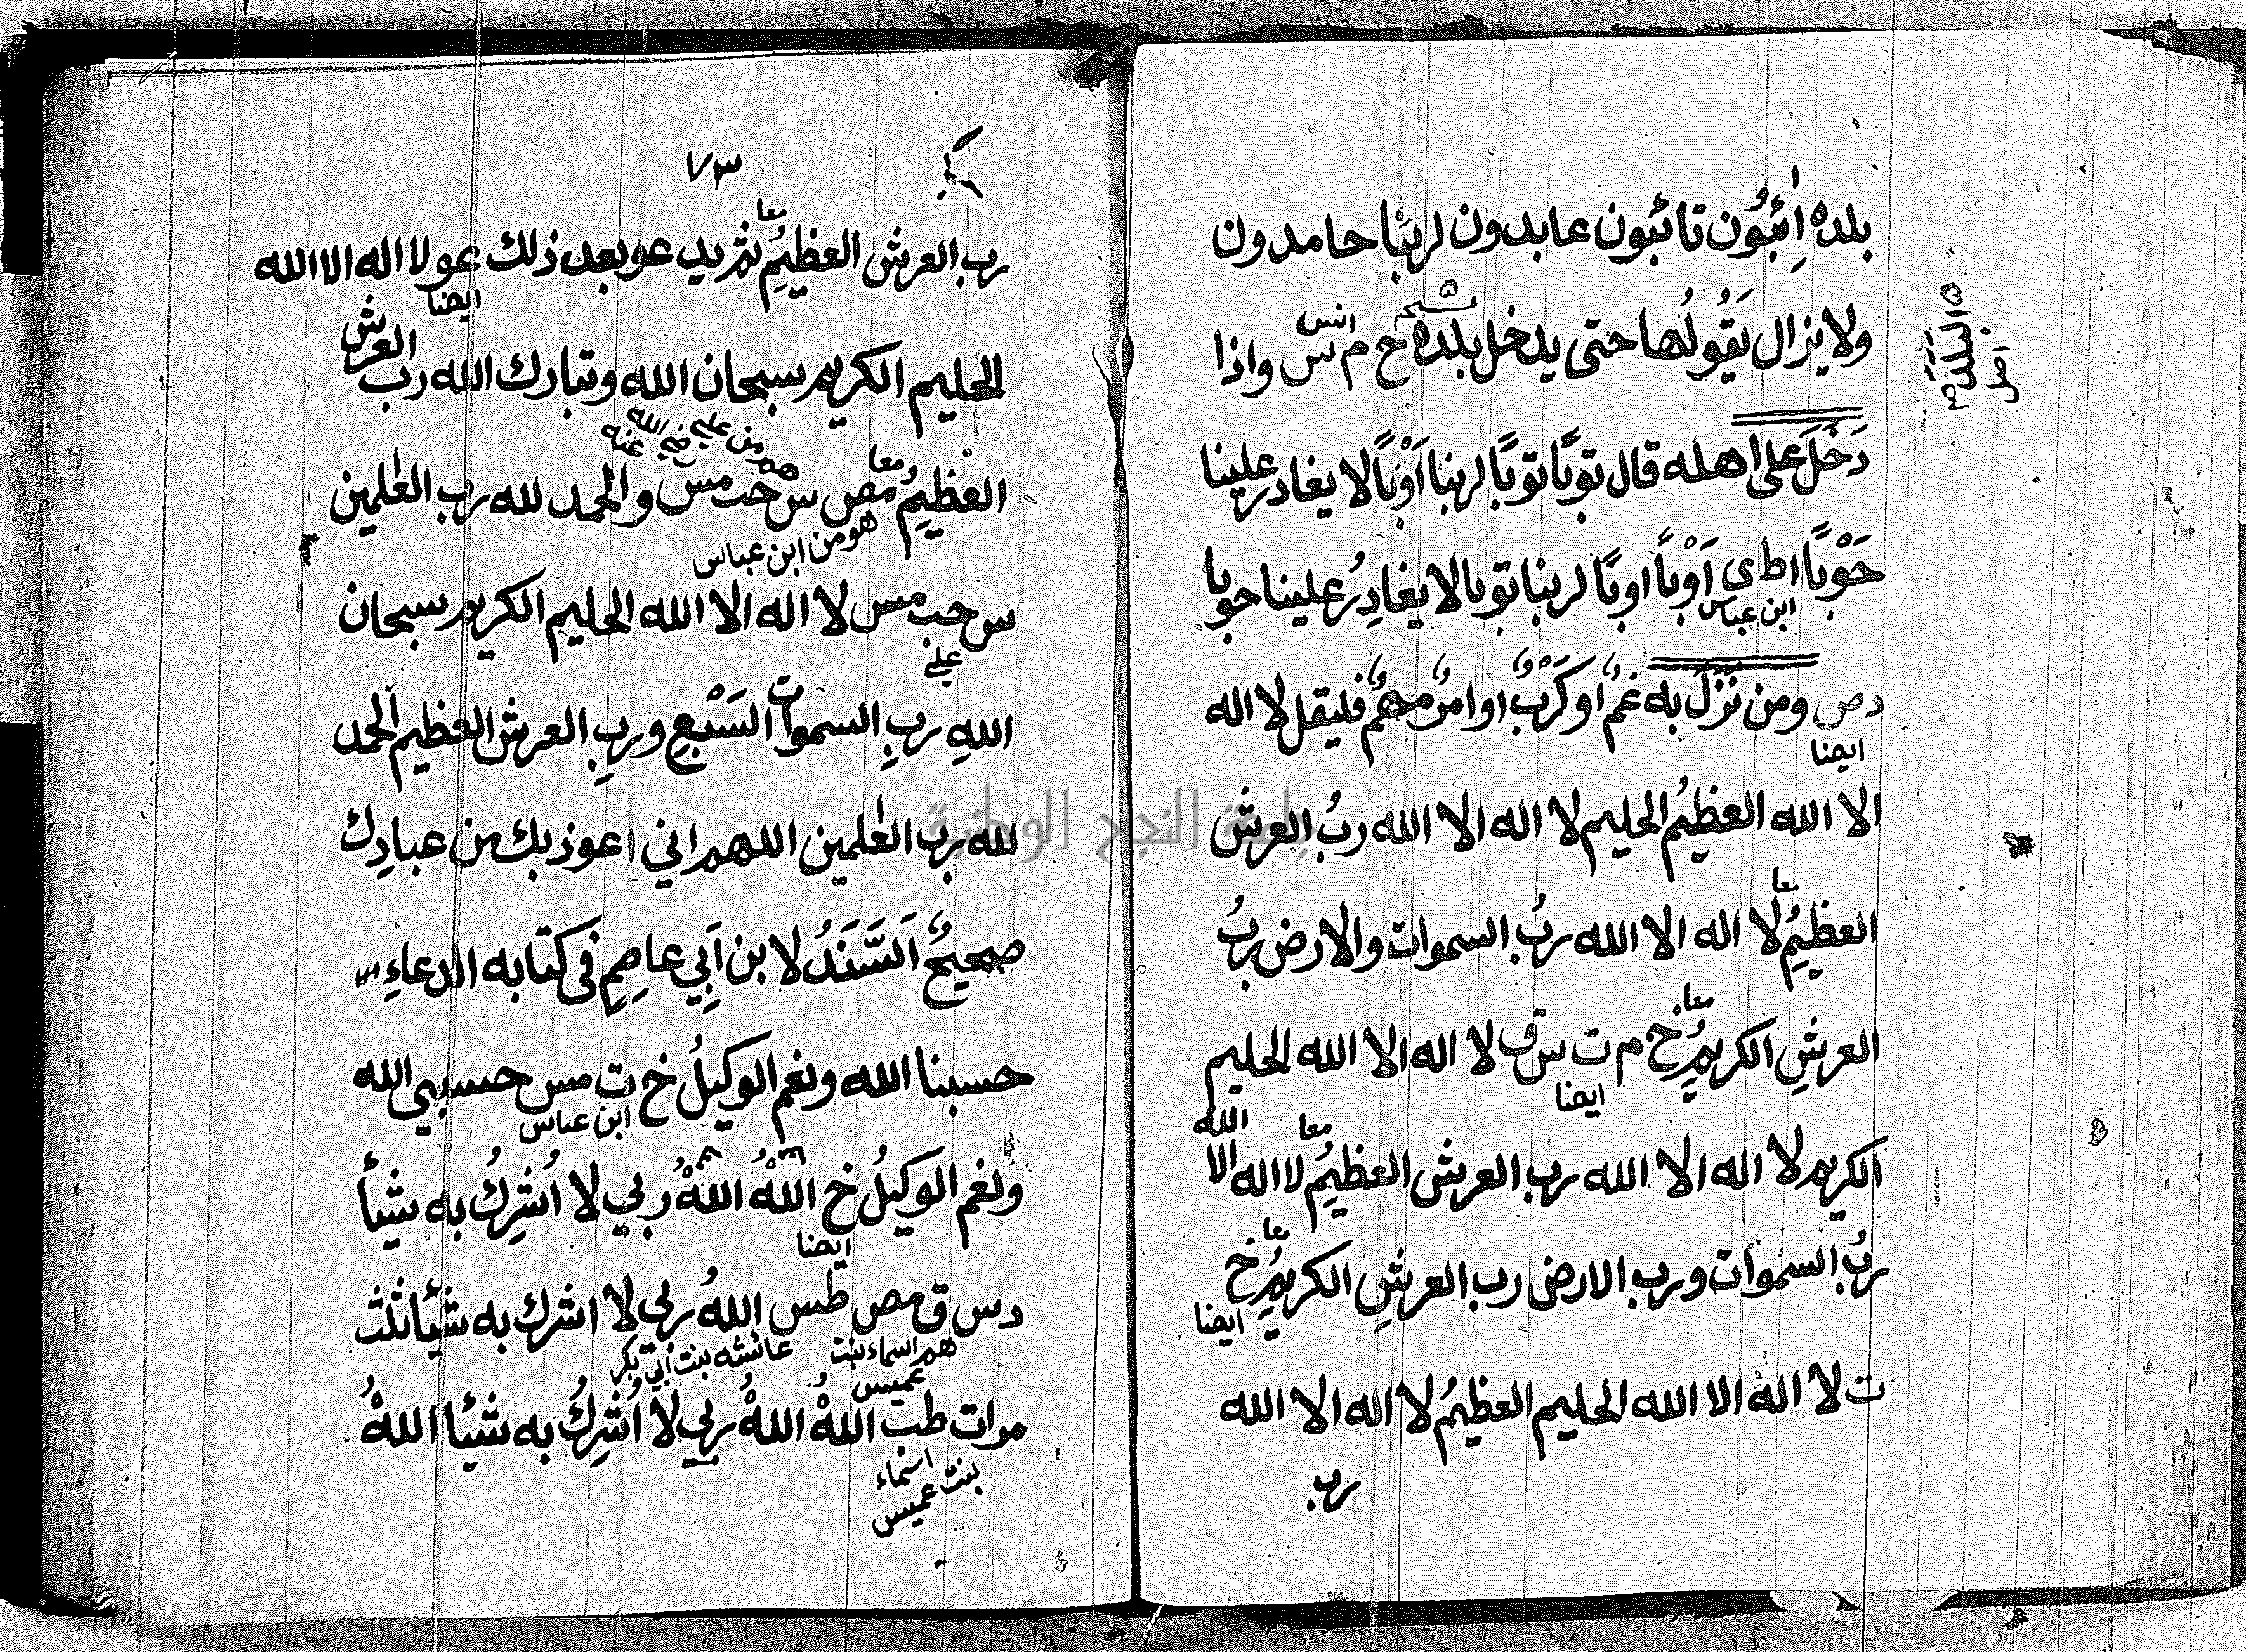 بلده اٰئِبُون تائبون عابدون لربنا حامدون
ولا يزال يَقُولُها حتى يدخل بلده خ م س واذا
انس
البلد
اصل
دَخَلَ على اهله قال توبًا توبًا لربنا اَوْبًا لا يغادر علينا
حَوْبًا ا ط ي اَوْبًا اوبًا لربنا توبا لا يغادِرُ علينا حوبا
ابن عباس
ر ص ومن نَزَلَ به غمٌ او كَرْبٌ او امرٌ مهمٌ فليقل لا اله
ايضا
الا الله العظيمُ الحليم لا اله الا الله ربُ العرش
معا
العظيمُِ لا اله الا الله ربُ السموات والارض ربُ
معا
العرشِ الكريمُِ خ م ت س ق لا اله الا الله الحليم
ايضا
الكريم لا اله الا الله رب العرش العظيمُِ لا اله الا الله
معا
ربُ السموات ورب الارض رب العرشِ الكريمُِ خ
معا
ايضا
ت لا اله الا الله الحليم العظيمُ لا اله الا الله
رب
٧٣
رب العرش العظيمُِ ثم يدعو بعد ذلك عو لا اله الا الله
معا
ايضا
الحليم الكريم سبحان الله وتبارك الله رب العرش
هم من علي رضي الله عنه
العظيمُِ مص س حب مس والحمد لله رب العٰلمين
معا
هو من ابن عباس
س حب مس لا اله الا الله الحليم الكريم سبحان
علي
اللهِ ربِ السموات السَبْعِ وربِ العرش العظيم الحمد
لله رب العٰلمين اللهم اني اعوذ بك من عبادِك
صحيحُ اَلسَّنَدُ لابن اَبِي عاصِمٍ في كتابه الدعاءِ
حسبنا الله ونعم الوكيلُ خ ت مس حسبي الله
ابن عباس
ونعم الوكيلُ خ اللهُ اللهُ ربي لا اُشرِكُ به شيأ
ايضا
د س ق مص طس اللهُ ربي لا اشرك به شيأ ثلث
هم اسماء بنت عميس
عائشه بنت أبي بكر
مرات طب اللهُ اللهُ ربي لا اُشرِكُ به شيئا اللهُ
اسماء
بنت عميس
جامعة النجاح الوطنية